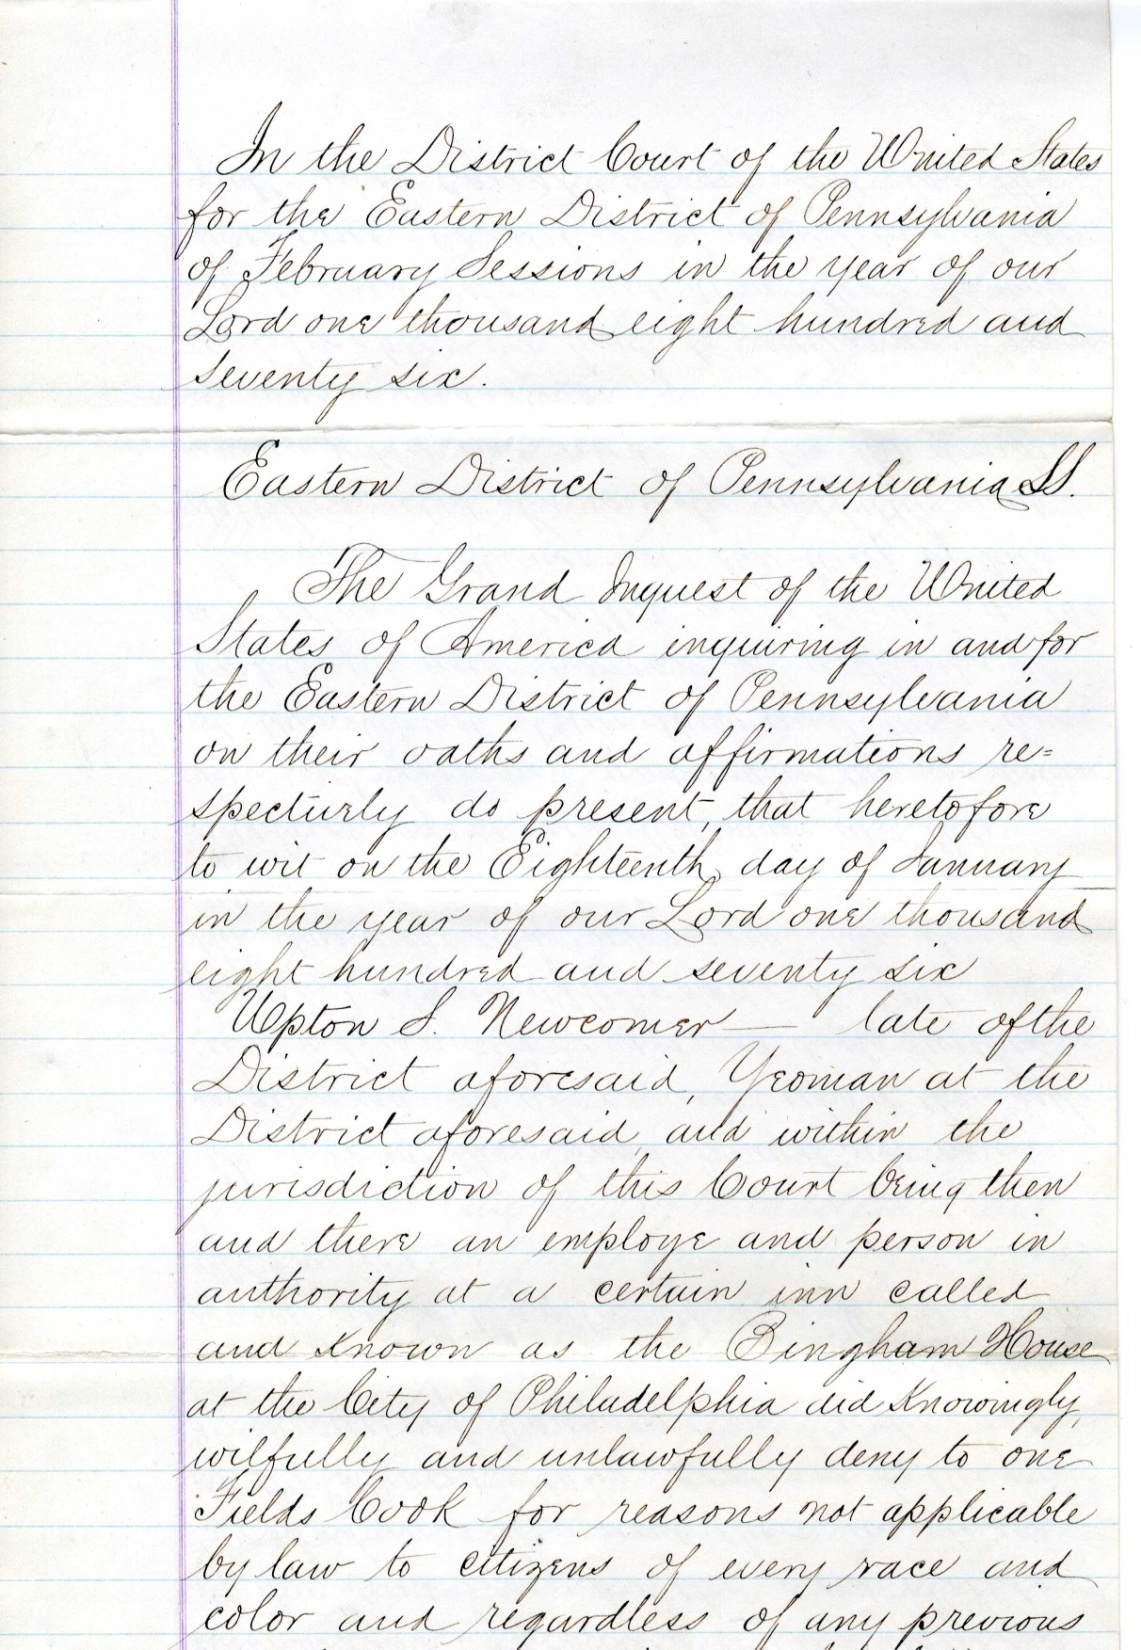 In the District Court of the United States
for the Eastern District of Pennsylvania
of February Sessions in the year of our
Lord one thousand eight hundred and
seventy six.
Eastern District of Pennsylvania SS.
The Grand Inquest of the United
States of America inquiring in and for
the Eastern District of Pennsylvania
on their oaths and affirmations re=
spectively do present, that heretofore
to wit on the Eighteenth day of January
in the year of our Lord one thousand
eight hundred and seventy six
Upton S. Newcomer — late of the
District aforesaid, Yeoman at the
District aforesaid, and within the
jurisdiction of this Court being then
and there an employe and person in
authority at a certain inn called
and known as the Bingham House
at the City of Philadelphia did Knowingly,
wilfully and unlawfully deny to one
Fields Cook for reasons not applicable
by law to citizens of every race and
color and regardless of any previous